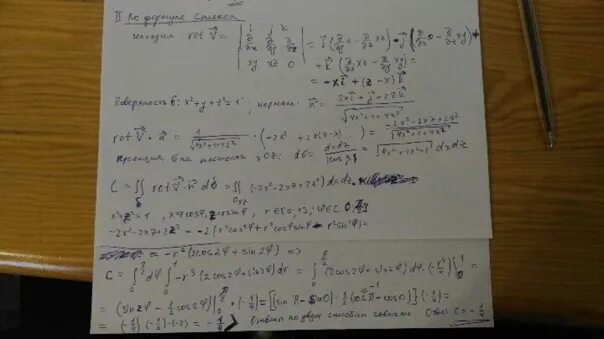 II По формуле Стокса
находим rot V⃗ = | i⃗ j⃗ k⃗ ; ∂/∂x ∂/∂y ∂/∂z ; xy xz 0 | = i⃗ (∂/∂y 0 - ∂/∂z xz) - j⃗ (∂/∂x 0 - ∂/∂z xy) +
+ k⃗ (∂/∂x xz - ∂/∂y xy) =
= -x i⃗ + (z - x) k⃗
Поверхность σ: x² + y + z² = 1; нормаль: n⃗ = (2x i⃗ + j⃗ + 2z k⃗) / √(4x² + 1 + 4z²)
rot V⃗ · n⃗ = 1/√(4x² + 1 + 4z²) · (-2x² + 2z(z - x)) = (-2x² - 2xz + 2z²) / √(4x² + 1 + 4z²)
проекция σ на плоскость xOz: dσ = dxdz/|cos β| = √(4x² + 4z² + 1) dxdz
C = ∬ rot V⃗ · n⃗ dσ = ∬ (-2x² - 2xz + 2z²) dxdz
x² + z² = 1, x = r cos φ, z = r sin φ, r ∈ [0, 1], φ ∈ [0, π/2]
-2x² - 2xz + 2z² = -2(r² cos² φ + r² cos φ sin φ - r² sin² φ) =
= -r² (2cos 2φ + sin 2φ) =>
C = ∫ dφ ∫ -r³ (2cos 2φ + sin 2φ) dr = ∫ (2cos 2φ + sin 2φ) dφ · (-r⁴/4) |₀¹ =
= (sin 2φ - 1/2 cos 2φ) | · (-1/4) = [(sin π - sin 0) - 1/2 (cos π - cos 0)] (-1/4) =
= (-1/4) (-1/2) · (-2) = -1/4 Ответы по двум способам совпали Ответ C = -1/4